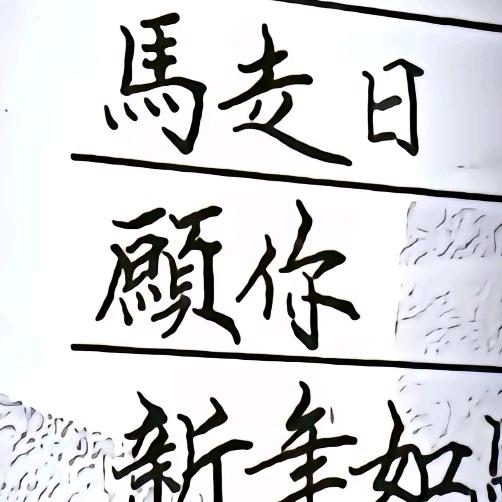 馬走日
願你
新年如